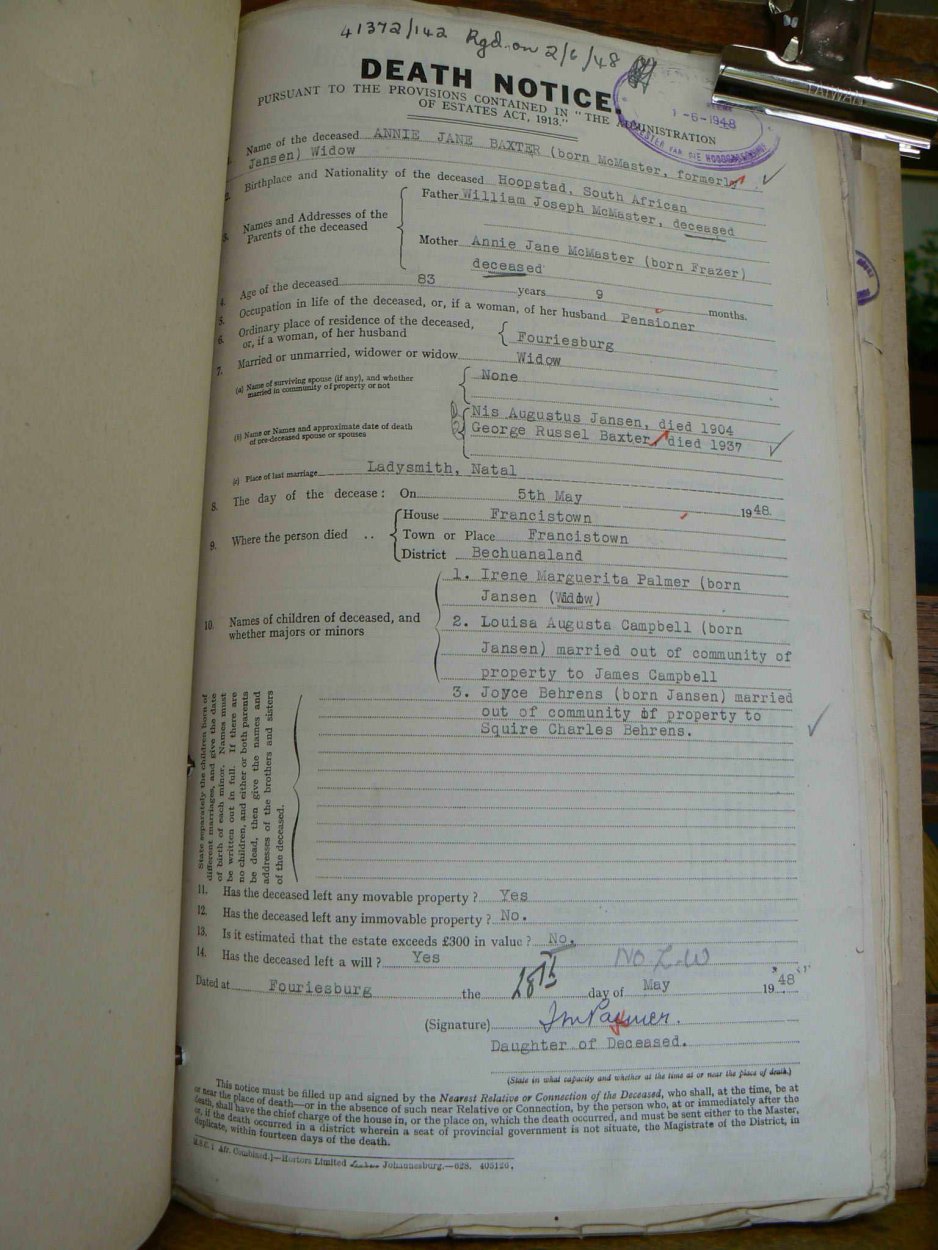 41372/142 Rgd. on 2/6/48
TAIWAN
DEATH NOTICE.
PURSUANT TO THE PROVISIONS CONTAINED IN "THE ADMINISTRATION
OF ESTATES ACT, 1913."
-6-1948
1. Name of the deceased ANNIE JANE BAXTER (born McMaster, formerly
Jansen) Widow
2. Birthplace and Nationality of the deceased Hoopstad, South African
3. Names and Addresses of the Parents of the deceased
Father William Joseph McMaster, deceased
Mother Annie Jane McMaster (born Frazer)
deceased
4. Age of the deceased 83 years 9 months.
5. Occupation in life of the deceased, or, if a woman, of her husband Pensioner
6. Ordinary place of residence of the deceased,
or, if a woman, of her husband Fouriesburg
7. Married or unmarried, widower or widow Widow
(a) Name of surviving spouse (if any), and whether
married in community of property or not None
(b) Name or Names and approximate date of death
of pre-deceased spouse or spouses
1) Nis Augustus Jansen, died 1904
2) George Russel Baxter, died 1937
(c) Place of last marriage Ladysmith, Natal
8. The day of the decease: On 5th May 1948.
9. Where the person died ..
House Francistown
Town or Place Francistown
District Bechuanaland
10. Names of children of deceased, and
whether majors or minors
1. Irene Marguerita Palmer (born
Jansen (Widow)
2. Louisa Augusta Campbell (born
Jansen) married out of community of
property to James Campbell
3. Joyce Behrens (born Jansen) married
out of community of property to
Squire Charles Behrens.
State separately the children born of
different marriages, and give the date
of birth of each minor. Names must
be written out in full. If there are
no children, and either or both parents
be dead, then give the names and
addresses of the brothers and sisters
of the deceased.
11. Has the deceased left any movable property? Yes
12. Has the deceased left any immovable property? No.
13. Is it estimated that the estate exceeds £300 in value? No.
14. Has the deceased left a will? Yes NO L.W
Dated at Fouriesburg the 18th day of May 1948
(Signature) IMPalmer.
Daughter of Deceased.
(State in what capacity and whether at the time at or near the place of death.)
This notice must be filled up and signed by the Nearest Relative or Connection of the Deceased, who shall, at the time, be at
or near the place of death—or in the absence of such near Relative or Connection, by the person who, at or immediately after the
death, shall have the chief charge of the house in, or the place on, which the death occurred, and must be sent either to the Master,
or, if the death occurred in a district wherein a seat of provincial government is not situate, the Magistrate of the District, in
duplicate, within fourteen days of the death.
Afr. Combined.]—Hortors Limited Johannesburg.—628. 405126.